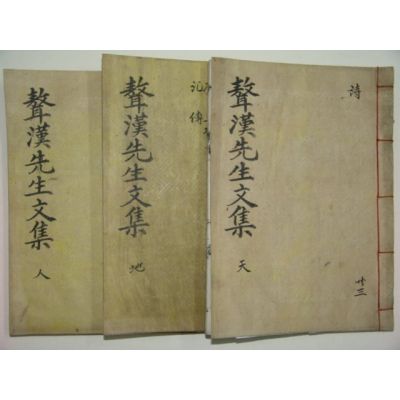 聱漢先生文集
天
詩
共三
聱漢先生文集
地
記傳
聱漢先生文集
人